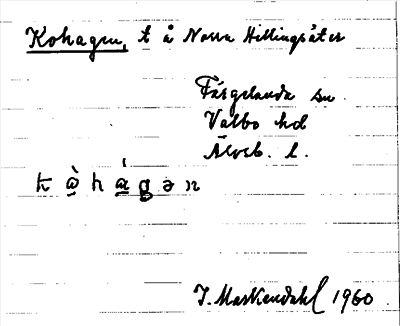 Kohagen, t å Norra Hillingsäter
Färgelanda sn
Valbo hd
Älvsb. l.
k à̱ h á̱ g ə n
1960